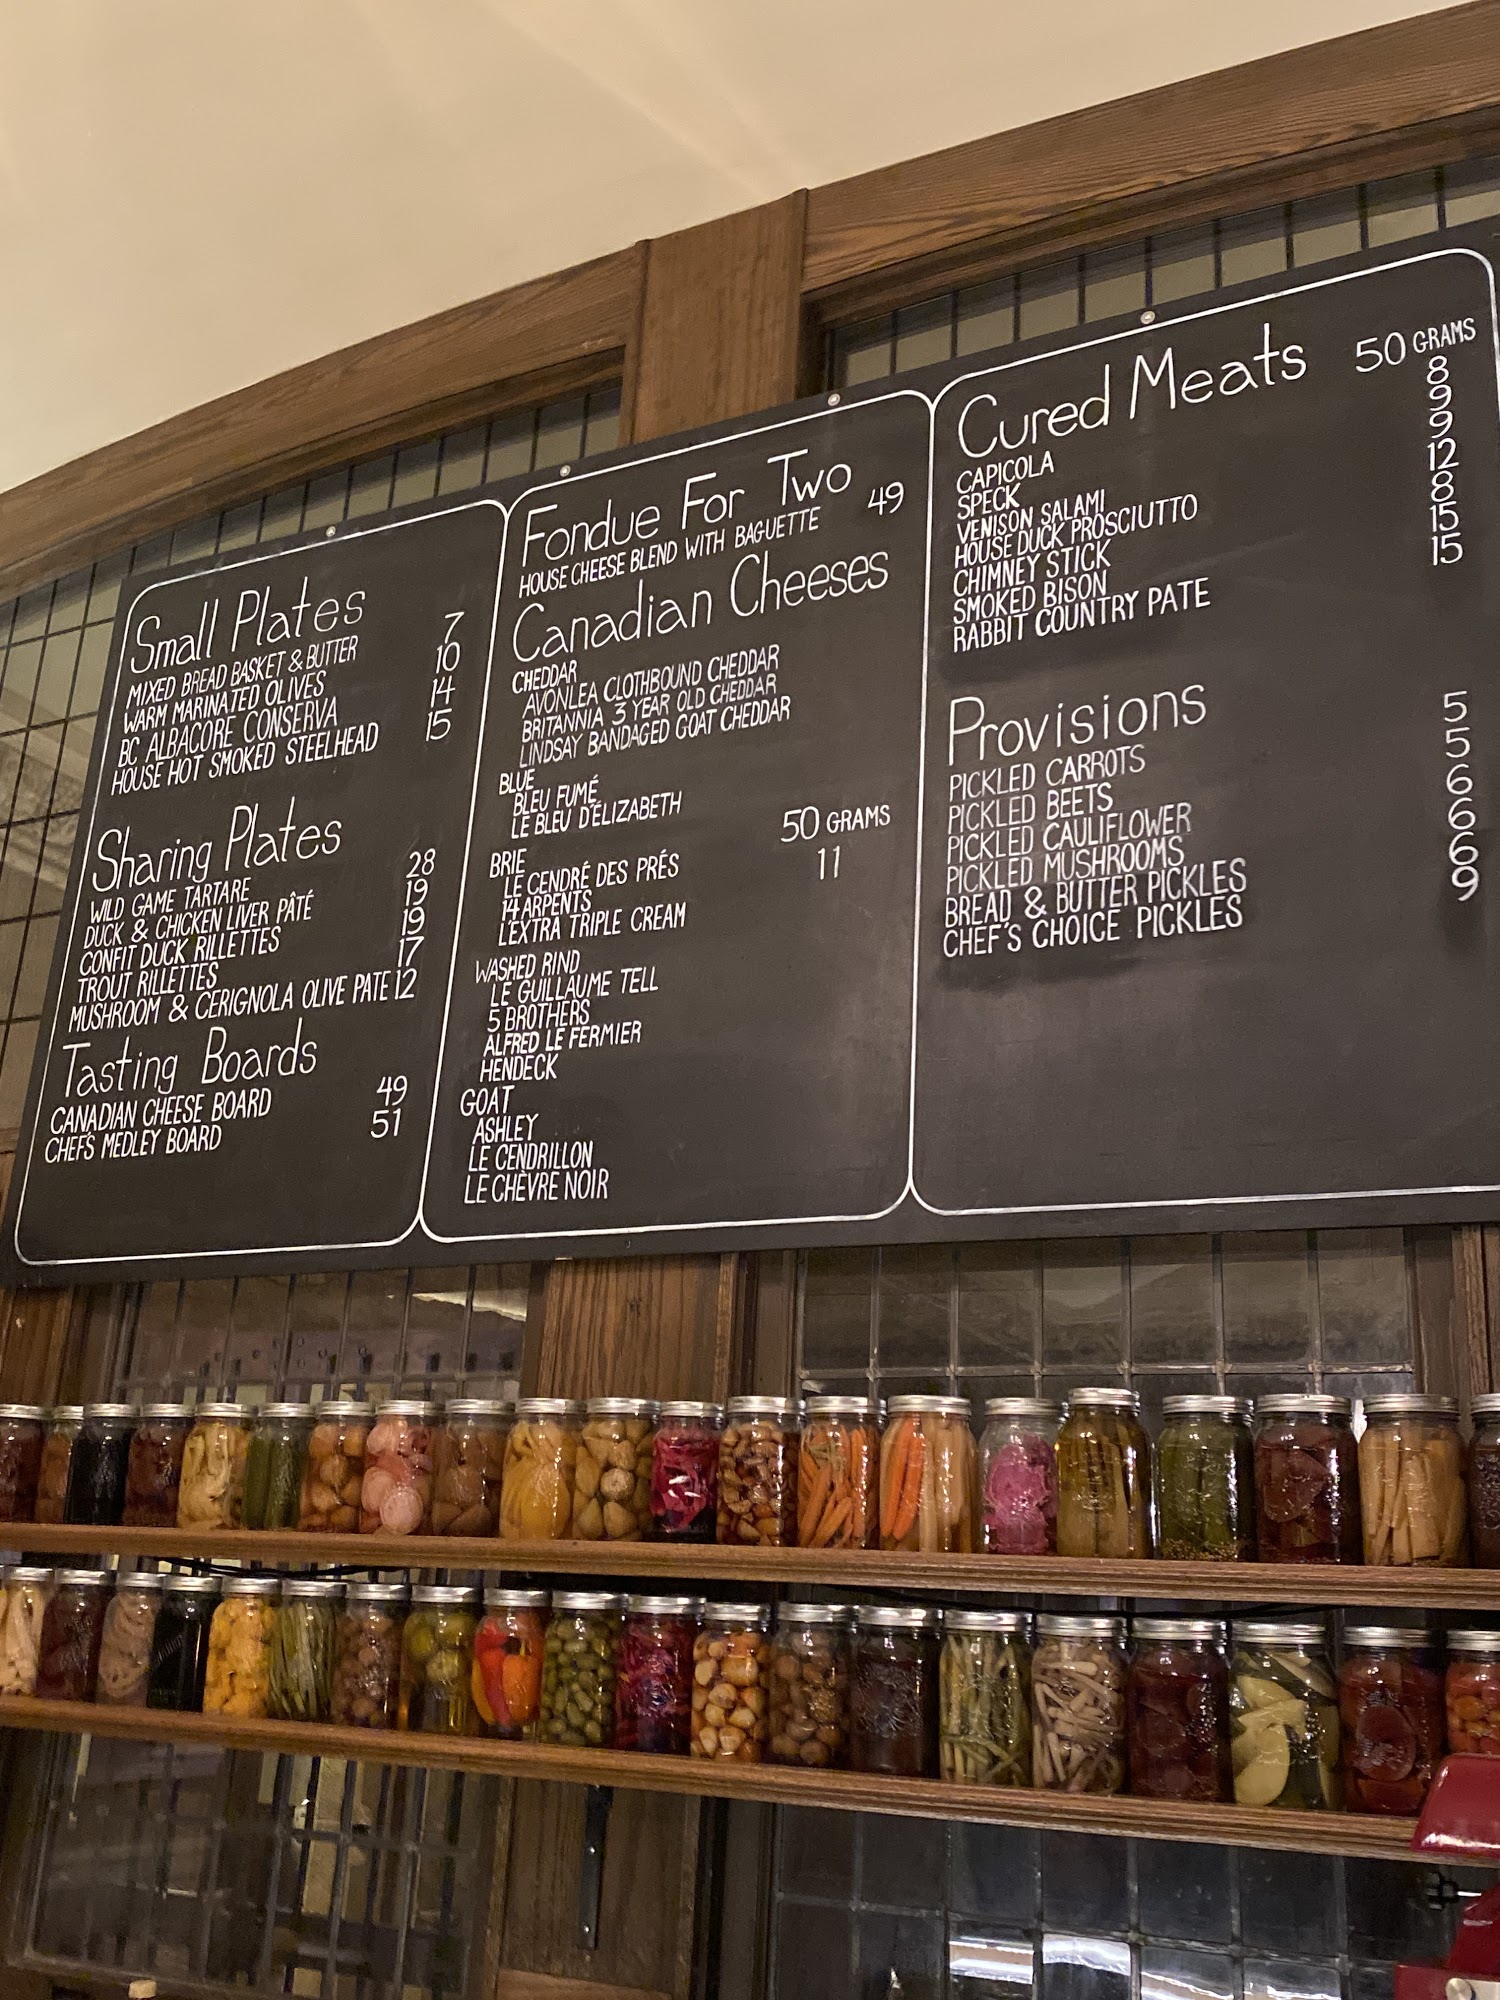 Small Plates
MIXED BREAD BASKET & BUTTER 7
WARM MARINATED OLIVES 10
BC ALBACORE CONSERVA 14
HOUSE HOT SMOKED STEELHEAD 15
Sharing Plates
WILD GAME TARTARE 28
DUCK & CHICKEN LIVER PÂTÉ 19
CONFIT DUCK RILLETTES 19
TROUT RILLETTES 17
MUSHROOM & CERIGNOLA OLIVE PATE 12
Tasting Boards
CANADIAN CHEESE BOARD 49
CHEF'S MEDLEY BOARD 51
Fondue For Two
HOUSE CHEESE BLEND WITH BAGUETTE 49
Canadian Cheeses
CHEDDAR
AVONLEA CLOTHBOUND CHEDDAR
BRITANNIA 3 YEAR OLD CHEDDAR
LINDSAY BANDAGED GOAT CHEDDAR
BLUE
BLEU FUMÉ
LE BLEU D'ÉLIZABETH
50 GRAMS
11
BRIE
LE CENDRÉ DES PRÉS
14 ARPENTS
L'EXTRA TRIPLE CREAM
WASHED RIND
LE GUILLAUME TELL
5 BROTHERS
ALFRED LE FERMIER
HENDECK
GOAT
ASHLEY
LE CENDRILLON
LE CHÈVRE NOIR
Cured Meats 50 GRAMS
CAPICOLA 8
SPECK 9
VENISON SALAMI 9
HOUSE DUCK PROSCIUTTO 12
CHIMNEY STICK 8
SMOKED BISON 15
RABBIT COUNTRY PATE 15
Provisions
PICKLED CARROTS 5
PICKLED BEETS 5
PICKLED CAULIFLOWER 6
PICKLED MUSHROOMS 6
BREAD & BUTTER PICKLES 6
CHEF'S CHOICE PICKLES 9